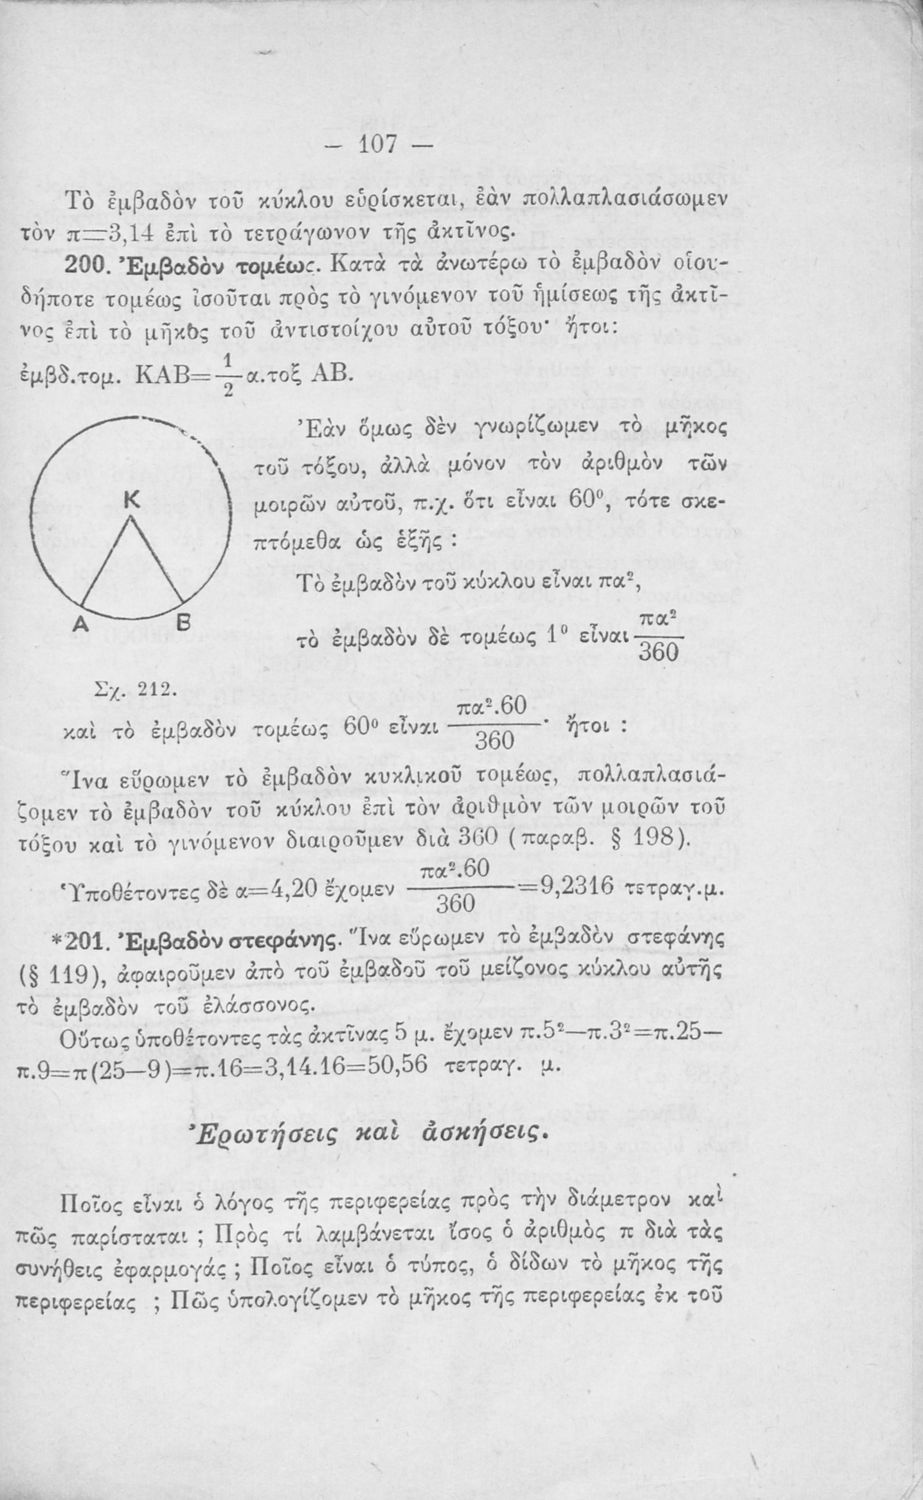 — 107 —
Τὸ ἐμβαδὸν τοῦ κύκλου εὑρίσκεται, ἐὰν πολλαπλασιάσωμεν
τὸν π=3,14 ἐπὶ τὸ τετράγωνον τῆς ἀκτῖνος.
200. Ἐμβαδὸν τομέως. Κατὰ τὰ ἀνωτέρω τὸ ἐμβαδὸν οἱου-
δήποτε τομέως ἰσοῦται πρὸς τὸ γινόμενον τοῦ ἡμίσεως τῆς ἀκτῖ-
νος ἐπὶ τὸ μῆκος τοῦ ἀντιστοίχου αὐτοῦ τόξου· ἤτοι:
ἐμβδ.τομ. ΚΑΒ=1/2 α.τοξ ΑΒ.
Ἐὰν ὅμως δὲν γνωρίζωμεν τὸ μῆκος
τοῦ τόξου, ἀλλὰ μόνον τὸν ἀριθμὸν τῶν
μοιρῶν αὐτοῦ, π.χ. ὅτι εἶναι 60⁰, τότε σκε-
πτόμεθα ὡς ἑξῆς :
Τὸ ἐμβαδὸν τοῦ κύκλου εἶναι πα²,
τὸ ἐμβαδὸν δὲ τομέως 1⁰ εἶναι πα²/360
Κ
Α Β
Σχ. 212.
καὶ τὸ ἐμβαδὸν τομέως 60⁰ εἶναι πα².60/360 · ἤτοι :
Ἵνα εὕρωμεν τὸ ἐμβαδὸν κυκλικοῦ τομέως, πολλαπλασιά-
ζομεν τὸ ἐμβαδὸν τοῦ κύκλου ἐπὶ τὸν ἀριθμὸν τῶν μοιρῶν τοῦ
τόξου καὶ τὸ γινόμενον διαιροῦμεν διὰ 360 (παραβ. § 198).
Ὑποθέτοντες δὲ α=4,20 ἔχομεν πα².60/360=9,2316 τετραγ.μ.
*201. Ἐμβαδὸν στεφάνης. Ἵνα εὕρωμεν τὸ ἐμβαδὸν στεφάνης
(§ 119), ἀφαιροῦμεν ἀπὸ τοῦ ἐμβαδοῦ τοῦ μείζονος κύκλου αὐτῆς
τὸ ἐμβαδὸν τοῦ ἐλάσσονος.
Οὕτως ὑποθέτοντες τὰς ἀκτῖνας 5 μ. ἔχομεν π.5²—π.3²=π.25—
π.9=π(25—9)=π.16=3,14.16=50,56 τετραγ. μ.
Ἐρωτήσεις καὶ ἀσκήσεις.
Ποῖος εἶναι ὁ λόγος τῆς περιφερείας πρὸς τὴν διάμετρον καὶ
πῶς παρίσταται ; Πρὸς τί λαμβάνεται ἴσος ὁ ἀριθμὸς π διὰ τὰς
συνήθεις ἐφαρμογάς ; Ποῖος εἶναι ὁ τύπος, ὁ δίδων τὸ μῆκος τῆς
περιφερείας ; Πῶς ὑπολογίζομεν τὸ μῆκος τῆς περιφερείας ἐκ τοῦ